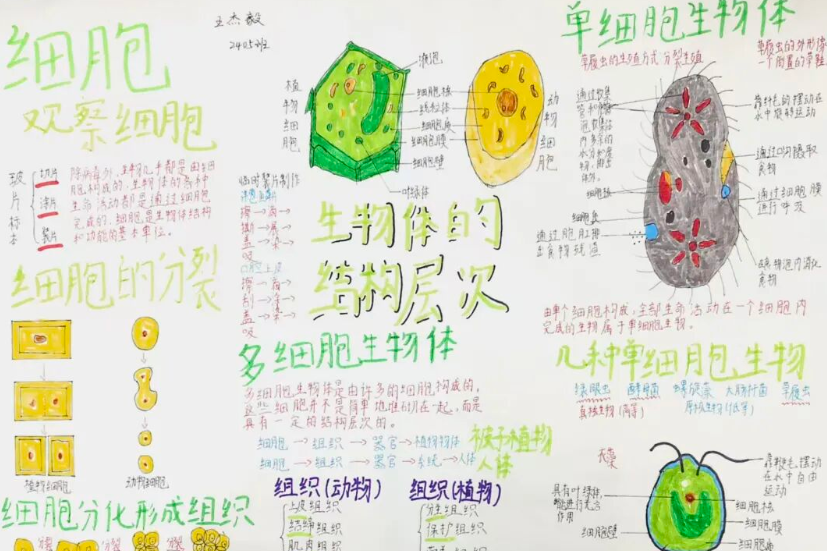 细胞
观察细胞
玻片标本
切片
涂片
装片
除病毒外,生物几乎都是由细
胞构成的,生物体的各种
生命活动都是通过细胞
完成的,细胞是生物体结构
和功能的基本单位。
细胞的分裂
植物细胞
动物细胞
细胞分化形成组织
分裂
分裂
分裂
王杰毅
2405班
植物细胞
液泡
细胞核
线粒体
细胞质
细胞膜
细胞壁
叶绿体
动物细胞
临时装片制作
擦→滴→
撕→展→
盖→染→
吸
口腔上皮
擦→滴→
刮→涂→
盖→染→
吸
生物体的
结构层次
多细胞生物体
多细胞生物体是由许多的细胞构成的,
这些细胞并不是简单地堆砌在一起,而是
具有一定的结构层次的。
细胞→组织→器官→植物体
被子植物
细胞→组织→器官→系统→人体
人体
组织(动物)
上皮组织
结缔组织
肌肉组织
组织(植物)
分生组织
保护组织
单细胞生物体
草履虫的生殖方式:分裂生殖
草履虫的外形像
一个倒置的草鞋
通过收集
细胞质
通过胞肛排
出食物残渣
靠纤毛的摆动在
水中旋转运动
通过口沟摄取
食物
通过细胞膜
进行呼吸
食物泡内消化
食物
由单个细胞构成,全部生命活动在一个细胞内
完成的生物属于单细胞生物。
几种单细胞生物
绿眼虫 酵母菌 螺旋藻 大肠杆菌 草履虫
真核生物(高等)
原核生物(低等)
衣藻
具有叶绿体,
能进行光合
作用
细胞壁
靠鞭毛摆动
在水中自由
运动
细胞核
细胞膜
细胞质